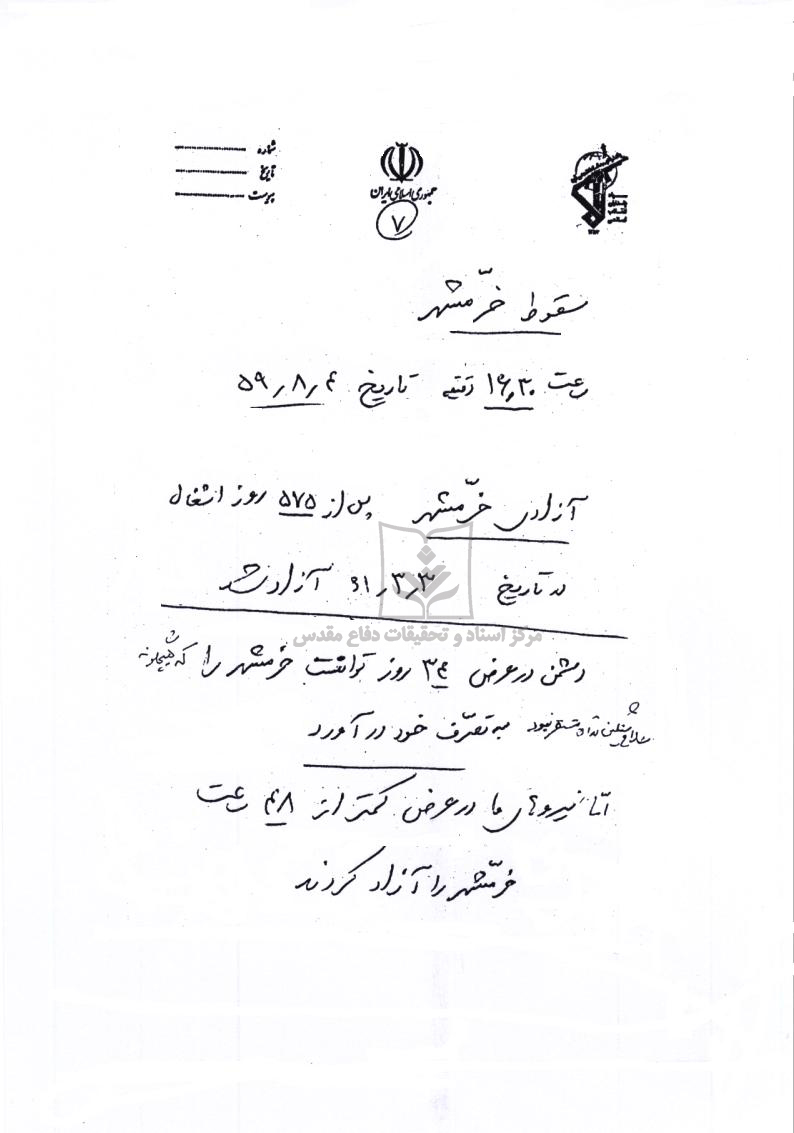 شماره
تاریخ
پیوست
جمهوری اسلامی ایران
۷
سقوط خرّمشهر
ساعت ۱۶٫۳۰ دقیقه تاریخ ۵۹٫۸٫۴
آزادی خرّمشهر پس از ۵۷۵ روز اشغال
در تاریخ ۶۱٫۳٫۳ آزاد شد
مرکز اسناد و تحقیقات دفاع مقدس
دشمن در عرض ۳۴ روز توانست خرمشهر را که هیچگونه
سلاح سنگین در آن مستقر نبود به تصرّف خود در آورد
امّا نیروهای ما در عرض کمتر از ۴۸ ساعت
خرمّشهر را آزاد کردند